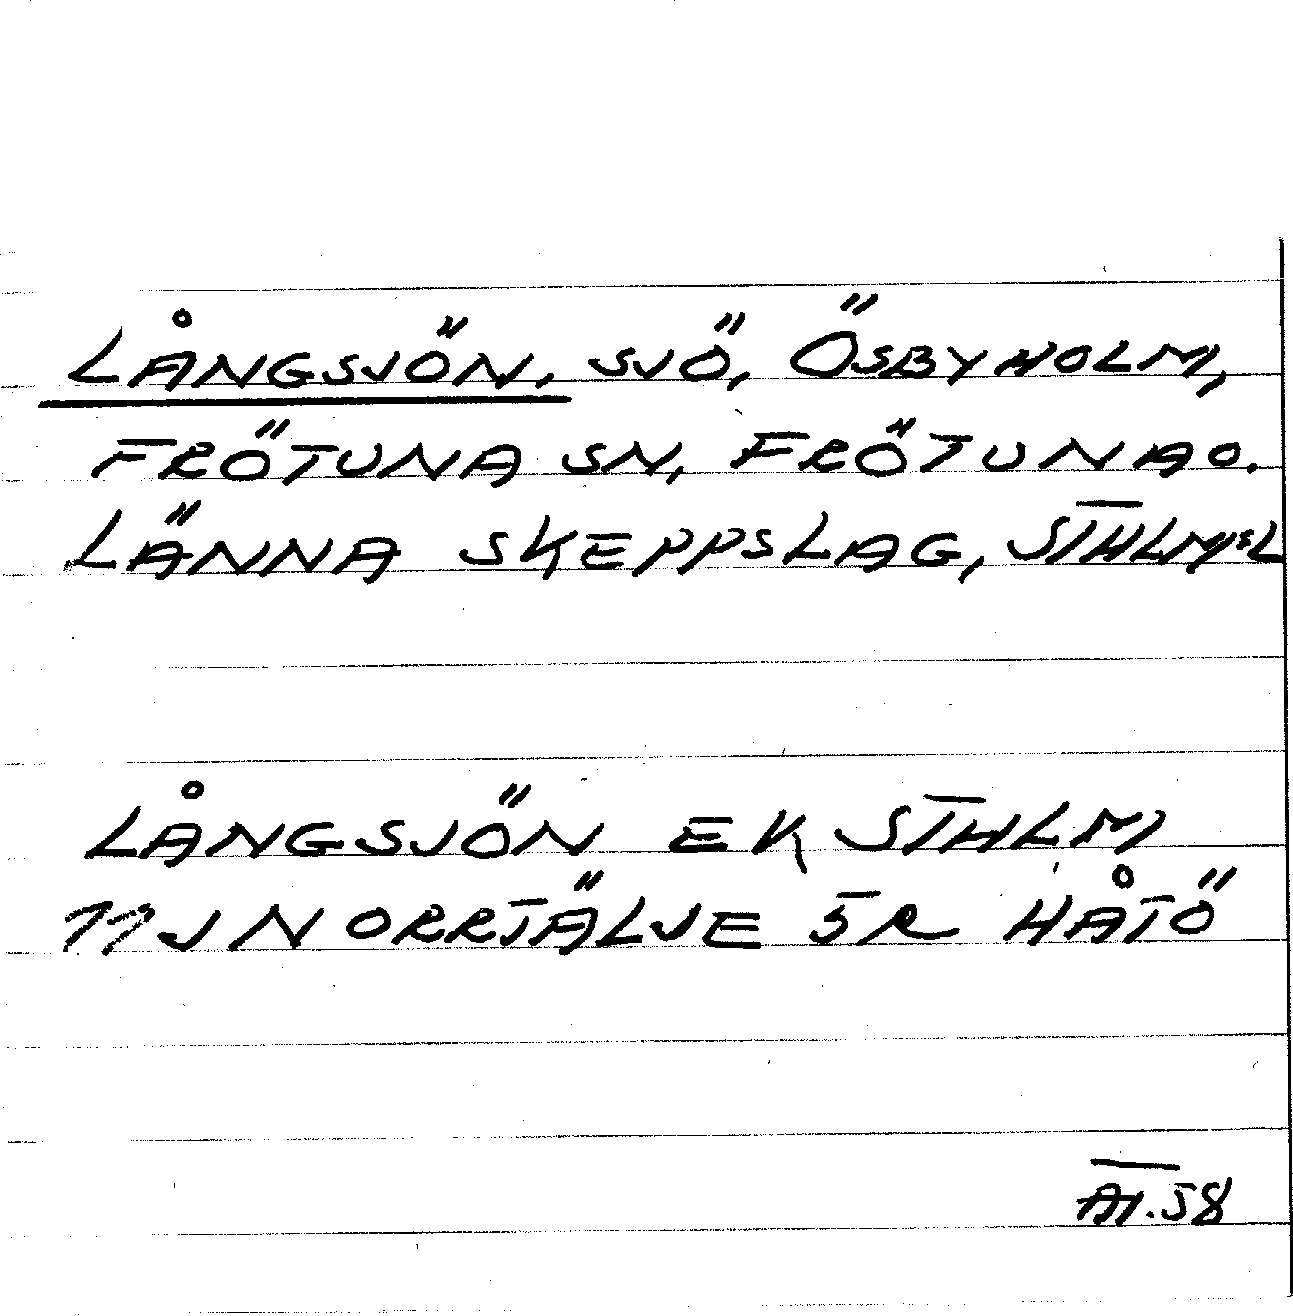 LÅNGSJÖN, SJÖ, ÖSBYHOLM,
FRÖTUNA SN, FRÖTUNA O.
LÄNNA SKEPPSLAG, STHLMSL
LÅNGSJÖN EK STHLM
11J NORRTÄLJE 5R HÅTÖ
AT.58